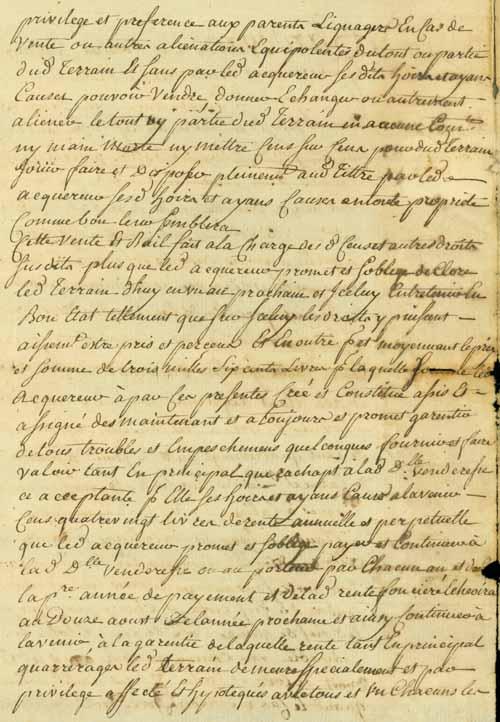 privilege et preference aux parents Lignagers En Cas de
Vente ou autres alienations Equipolentes du tout ou partie
dud Terrain Et sans par led acquereur ses dits hoirs et ayans
Causes pouvoir Vendre donner Echanger ou autrement
aliener le tout ny partie dud Terrain En aucune
ny main Morte ny mettre Cens sur Cens pour dud Terrain
Joüir faire et disposer plainemt aud Tittre par led
acquereur ses d hoirs et ayans Causes en toute proprieté
Comme bon leur Semblera
Cette Vente Et Bail fait a la Charge des d Cens et autres droits
Susdits plus que led acquereur promet et Soblige de Clore
led Terrain dhuy en un an prochain et Iceluy Entretenir En
Bon Etat tellement que sur Iceluy les droits y puissent
aisemt estre pris et perceus Et En outre pr et moyennant le prix
et somme de trois milles Six cents Livres pr laquelle Somme led
acquereur à par Ces presentes Créé et Constitué assis Et
assigné des maintenant et a toujours et promet garentir
de tous troubles et Empeschemens quelconques fournir et faire
valoir tant En principal que rachapt à lad dlle Venderesse
ce acceptante pr Elle ses hoirs et ayans Cause a lavenir
Cens quatre vingt livres de rente annuelle et perpetuelle
que led acquereur promet et Soblige payer et Continuer à
lad Dlle Venderesse ou au porteur par Chacun an et dont
la pre année de payement et de lad rente fonciere Echeoira
au Douze aoust De lannée prochaine et ainsy Continuer à
lavenir, à la garentie de laquelle rente tant En principal
quarrerages led Terrain demeure Specialement et par
privilege affecté Et hypotequés avec tous et un Chacuns les